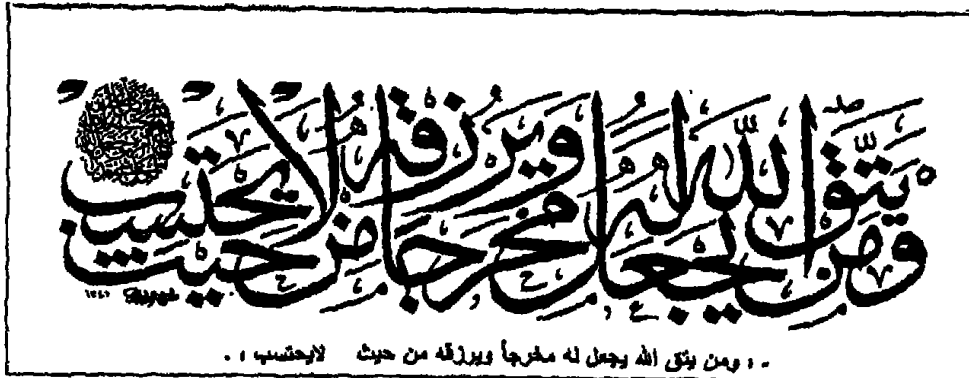 ومن يتق الله يجعل له مخرجا ويرزقه من حيث لا يحتسب
.، ومن يتق الله يجعل له مخرجاً ويرزقه من حيث لايحتسب ، .